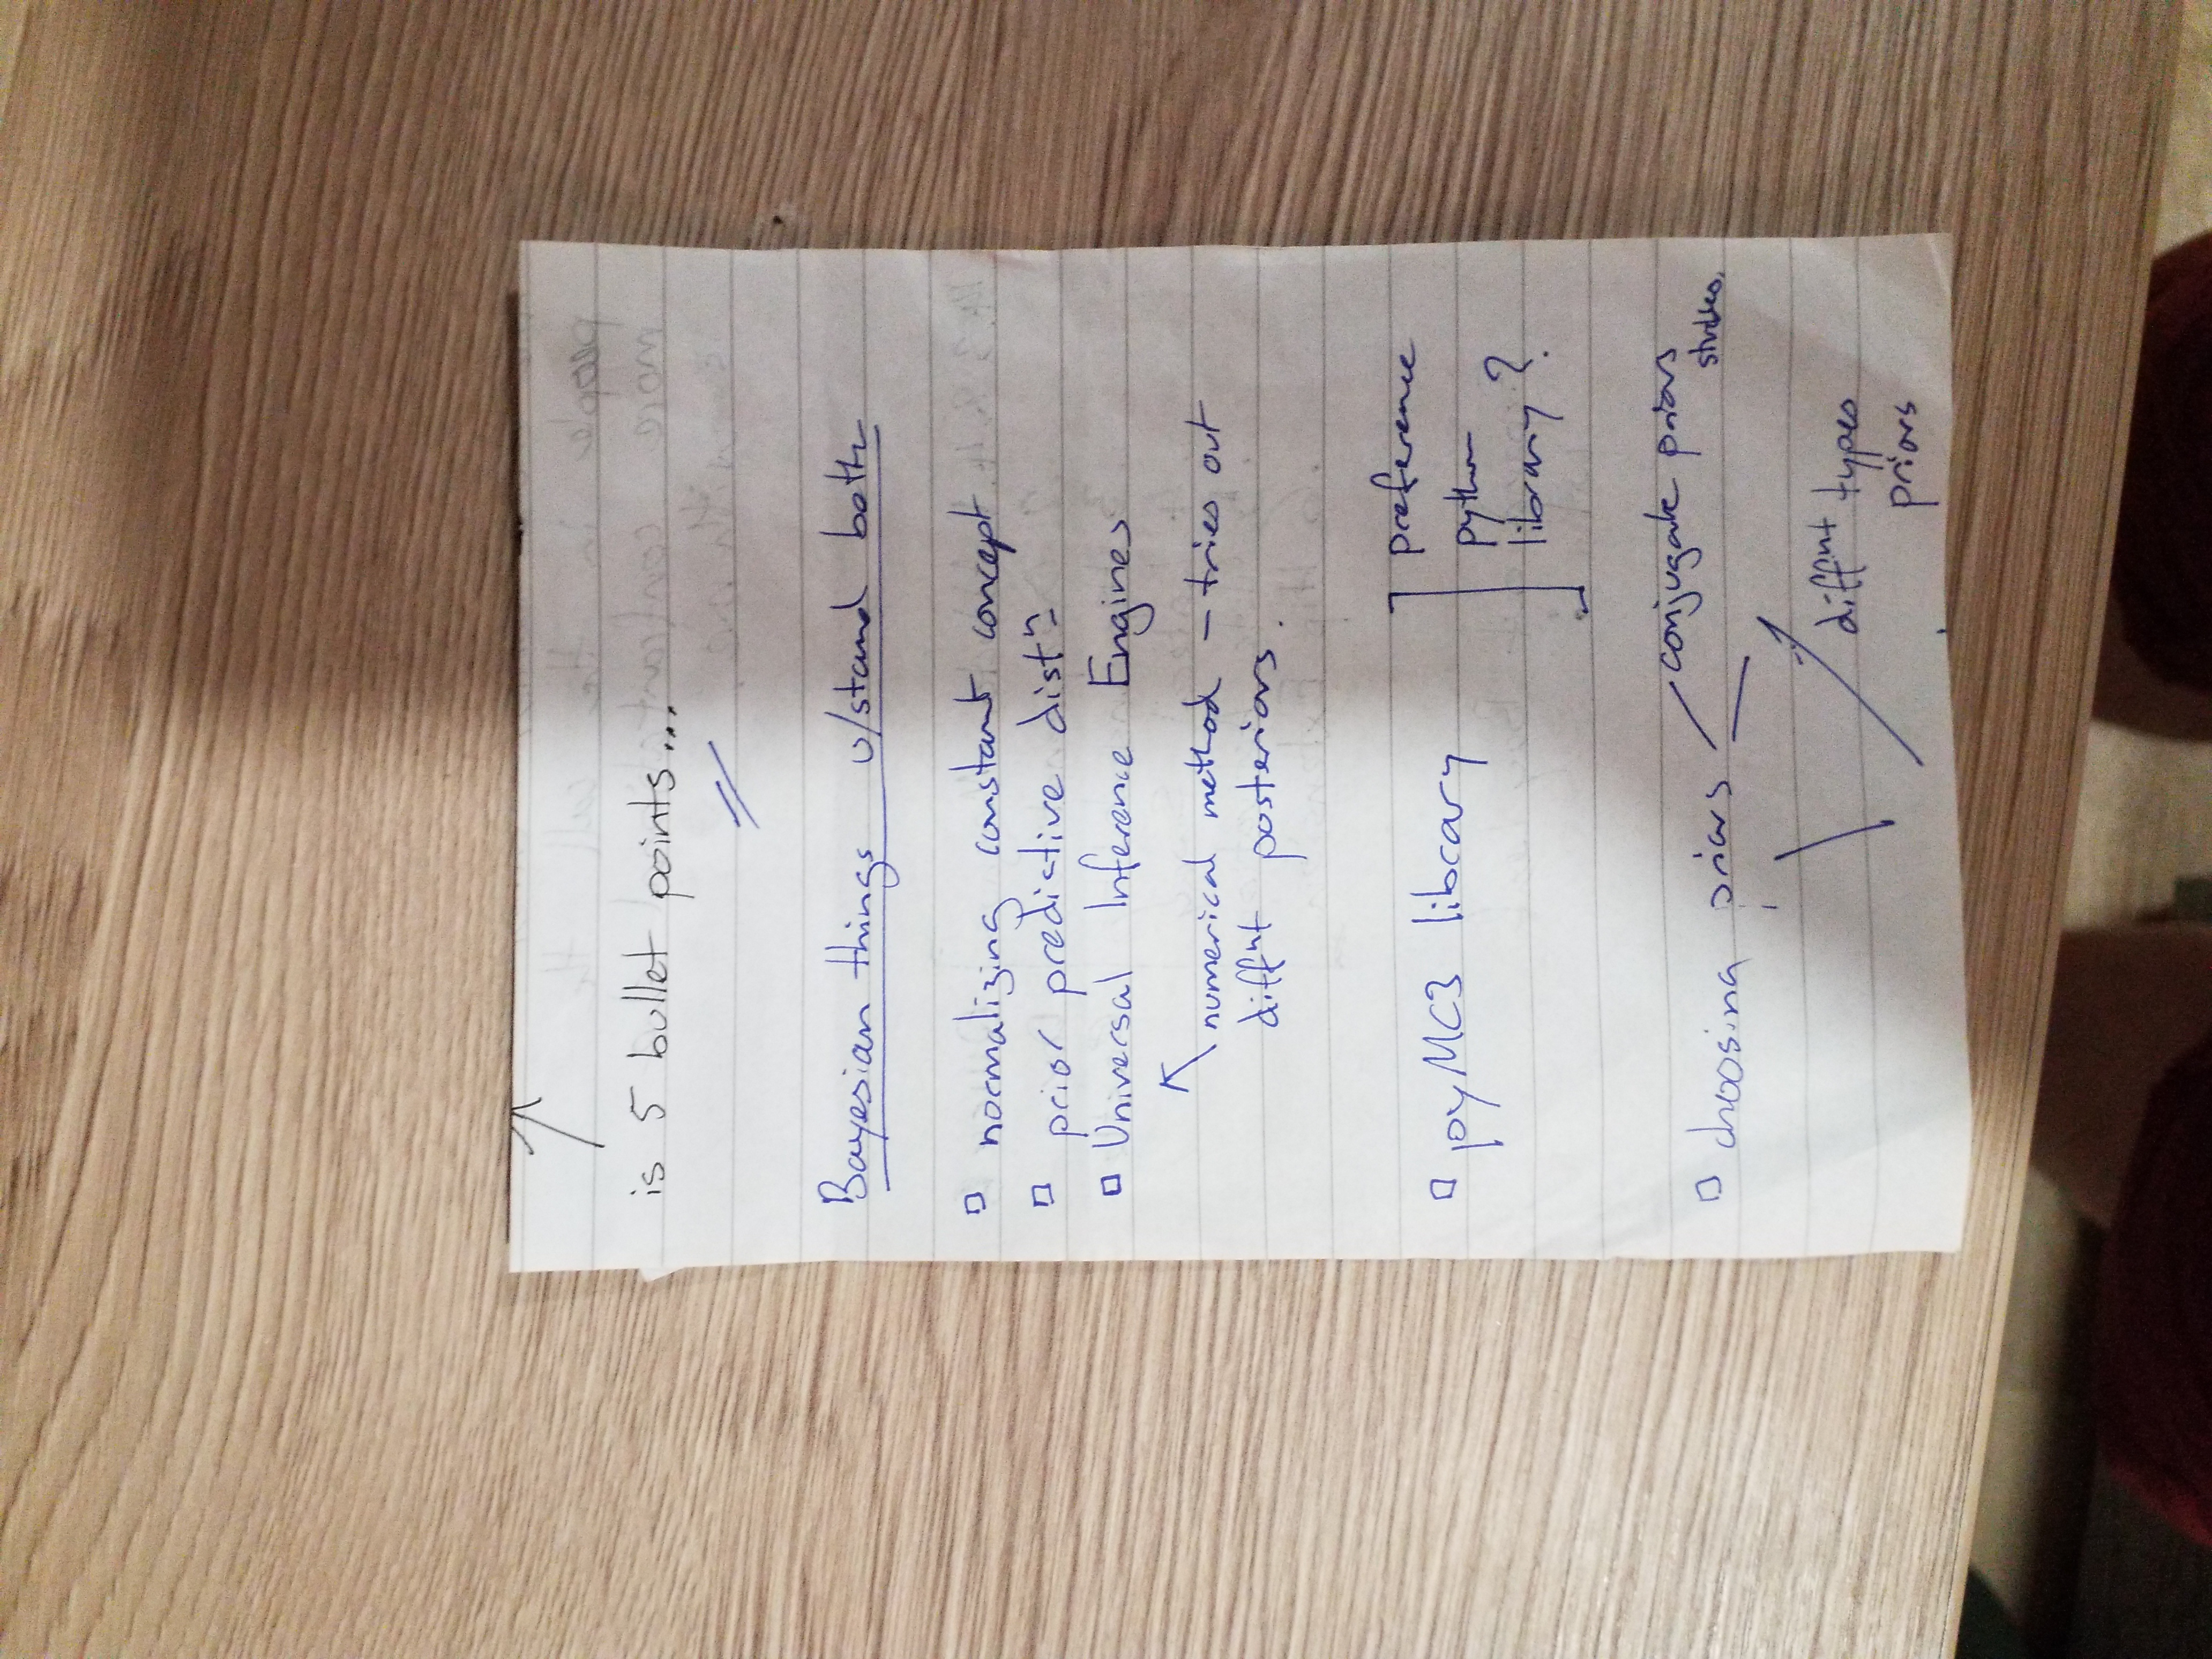 is 5 bullet points...
Bayesian things u/stand both
normalizing constant concept
prior predictive distn
Universal Inference Engines
numerical method – tries out
diffnt posteriors.
pyMC3 library ] preference
python
library?
choosing priors
conjugate priors
diffnt types
priors